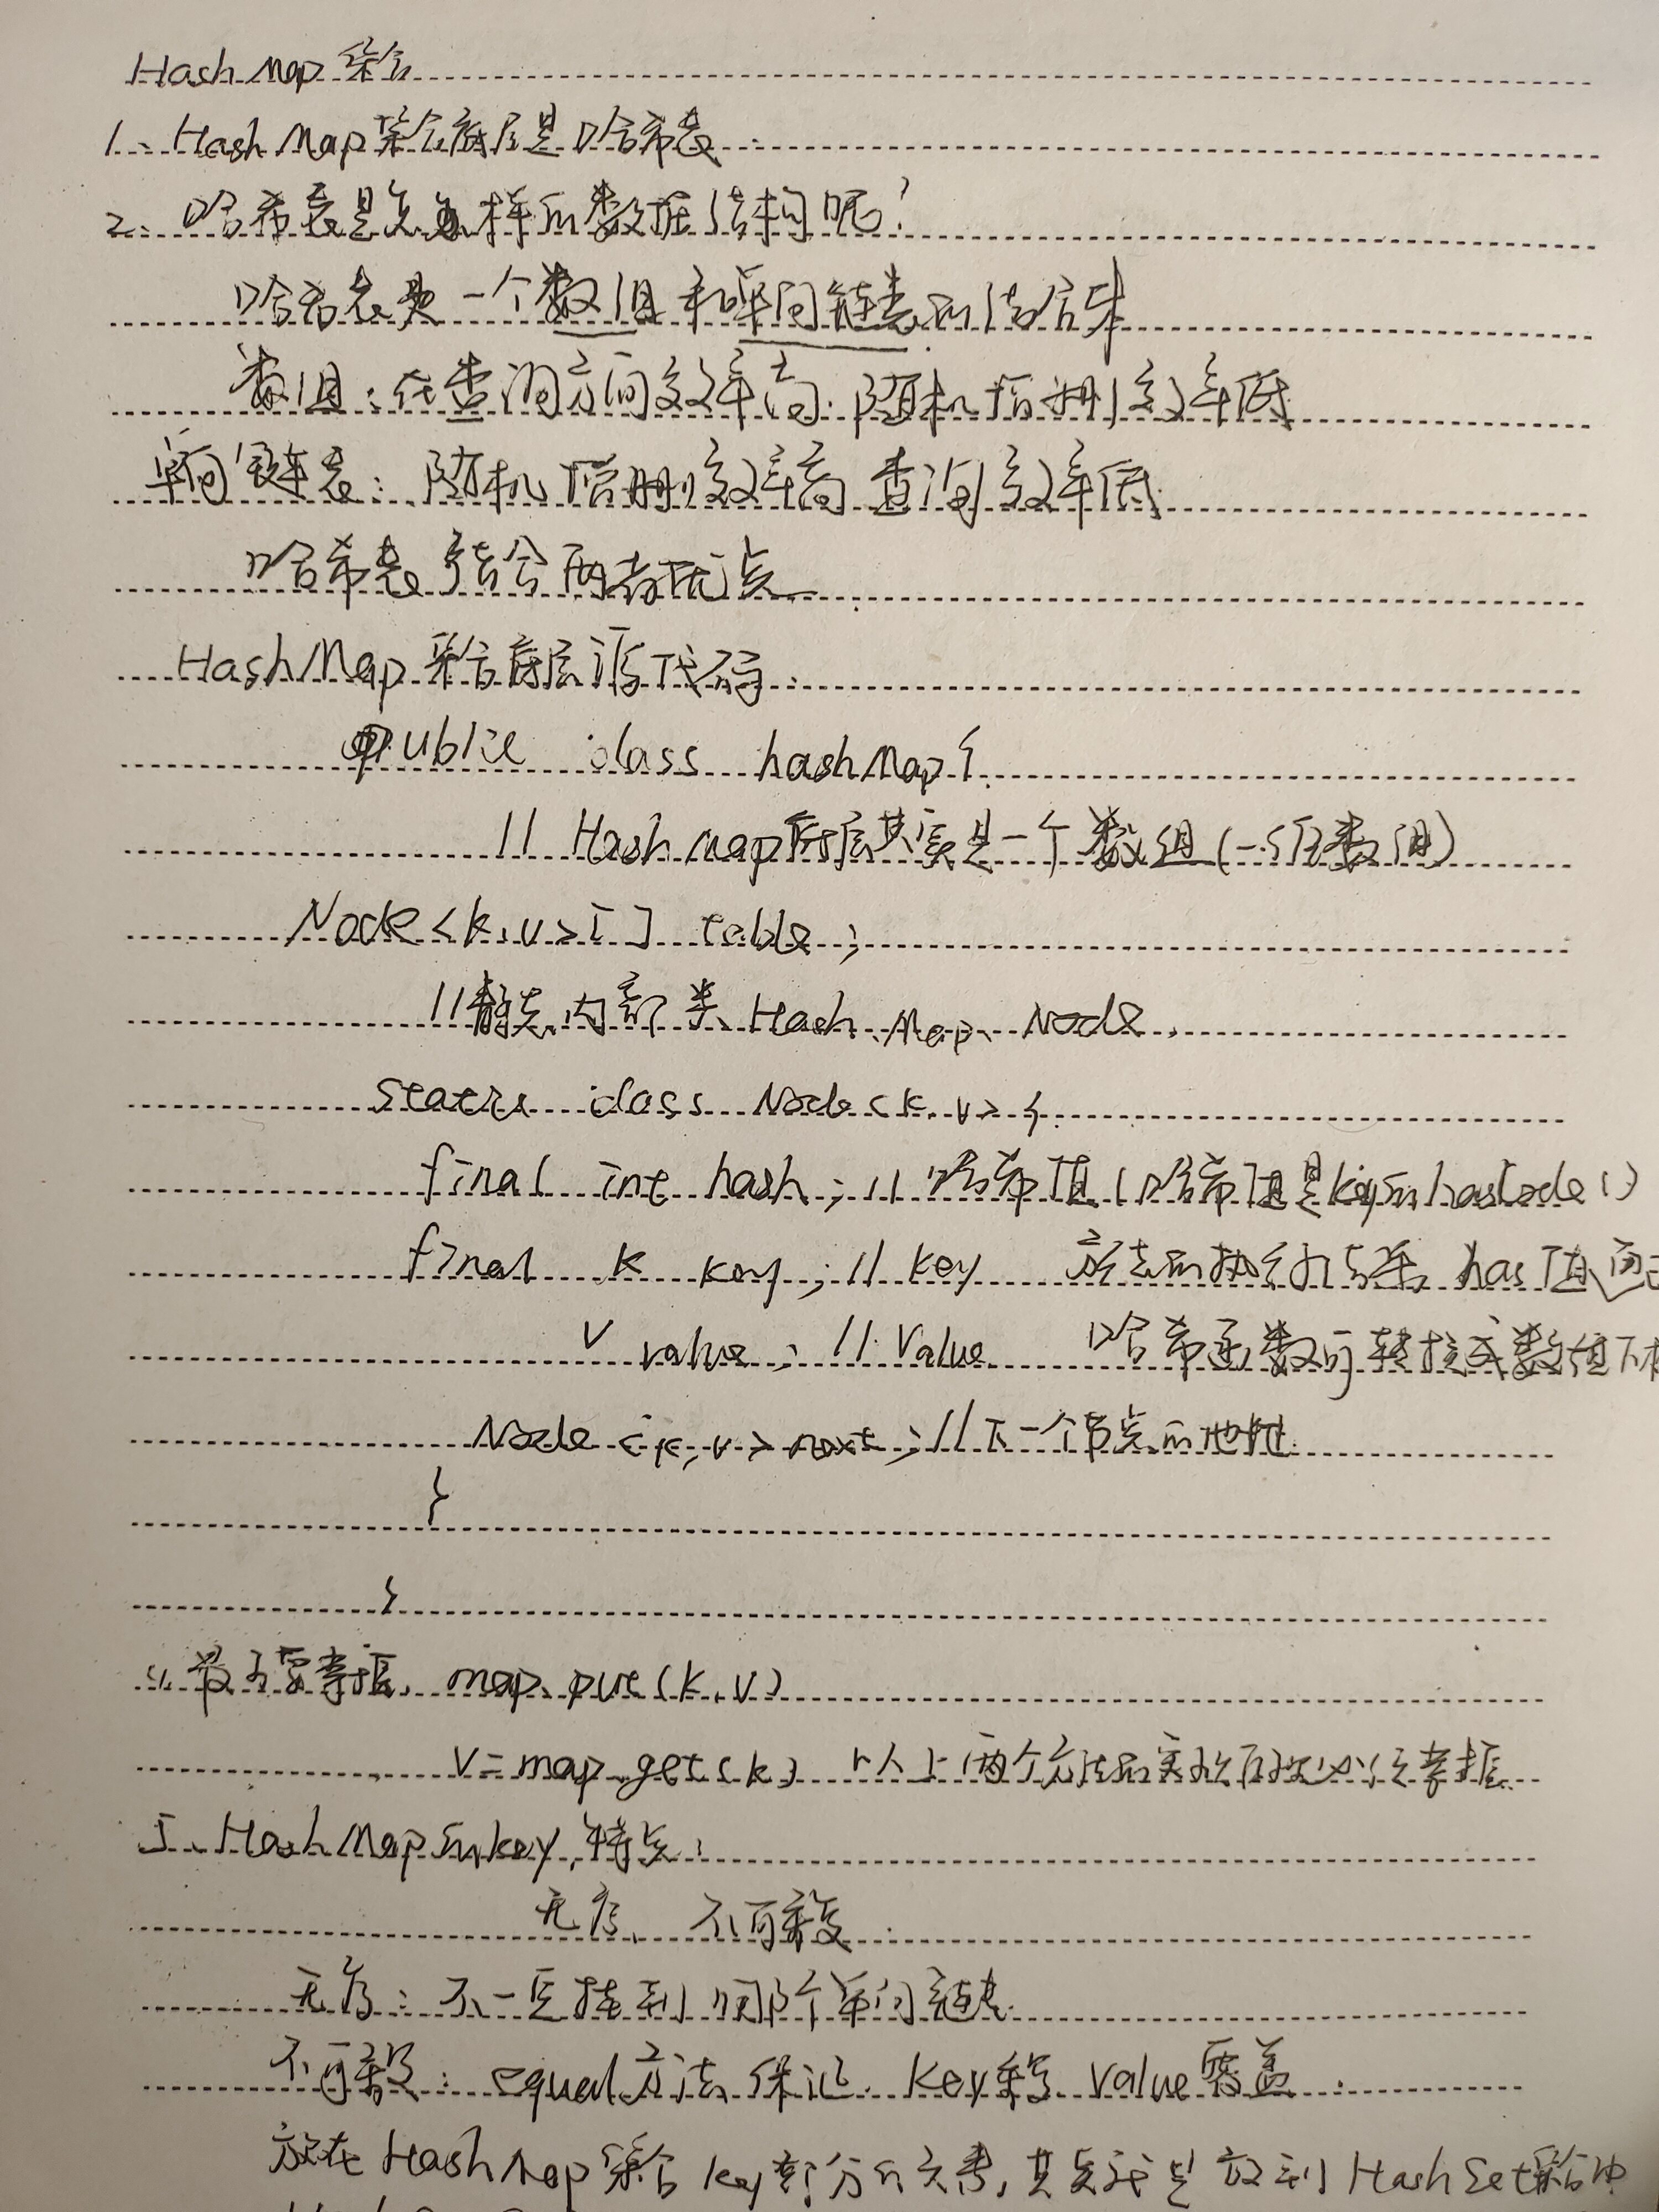 HashMap集合
1、HashMap集合底层是哈希表
2、哈希表是怎么样的数据结构呢?
哈希表是一个数组和单向链表的结合体
数组:在查询方面效率高.随机增删效率低
单向链表:随机增删效率高 查询效率低
哈希表结合两者优点
HashMap集合底层源代码:
public class hashMap{
// HashMap底层其实是一个数组(一维数组)
Node<k,v>[] table;
//静态内部类 HashMap.Node
static class Node<k,v>{
final int hash; // 哈希值(哈希值是key的hasCode()
final k key; // key 方法的执行结果 has值通过
v value; // Value 哈希函数可转换成数组下标
Node<k,v> next; //下一个节点的地址
}
}
最主要掌握 map.put(k,v)
v=map.get(k) 以上两个方法的实现原理必须掌握
5、HashMap的key特点:
无序、不可重复
无序:不一定挂到哪个单向链表
不可重复:equal方法保证 key重复 value覆盖
放在HashMap集合key部分的元素,其实就是放到HashSet集合中